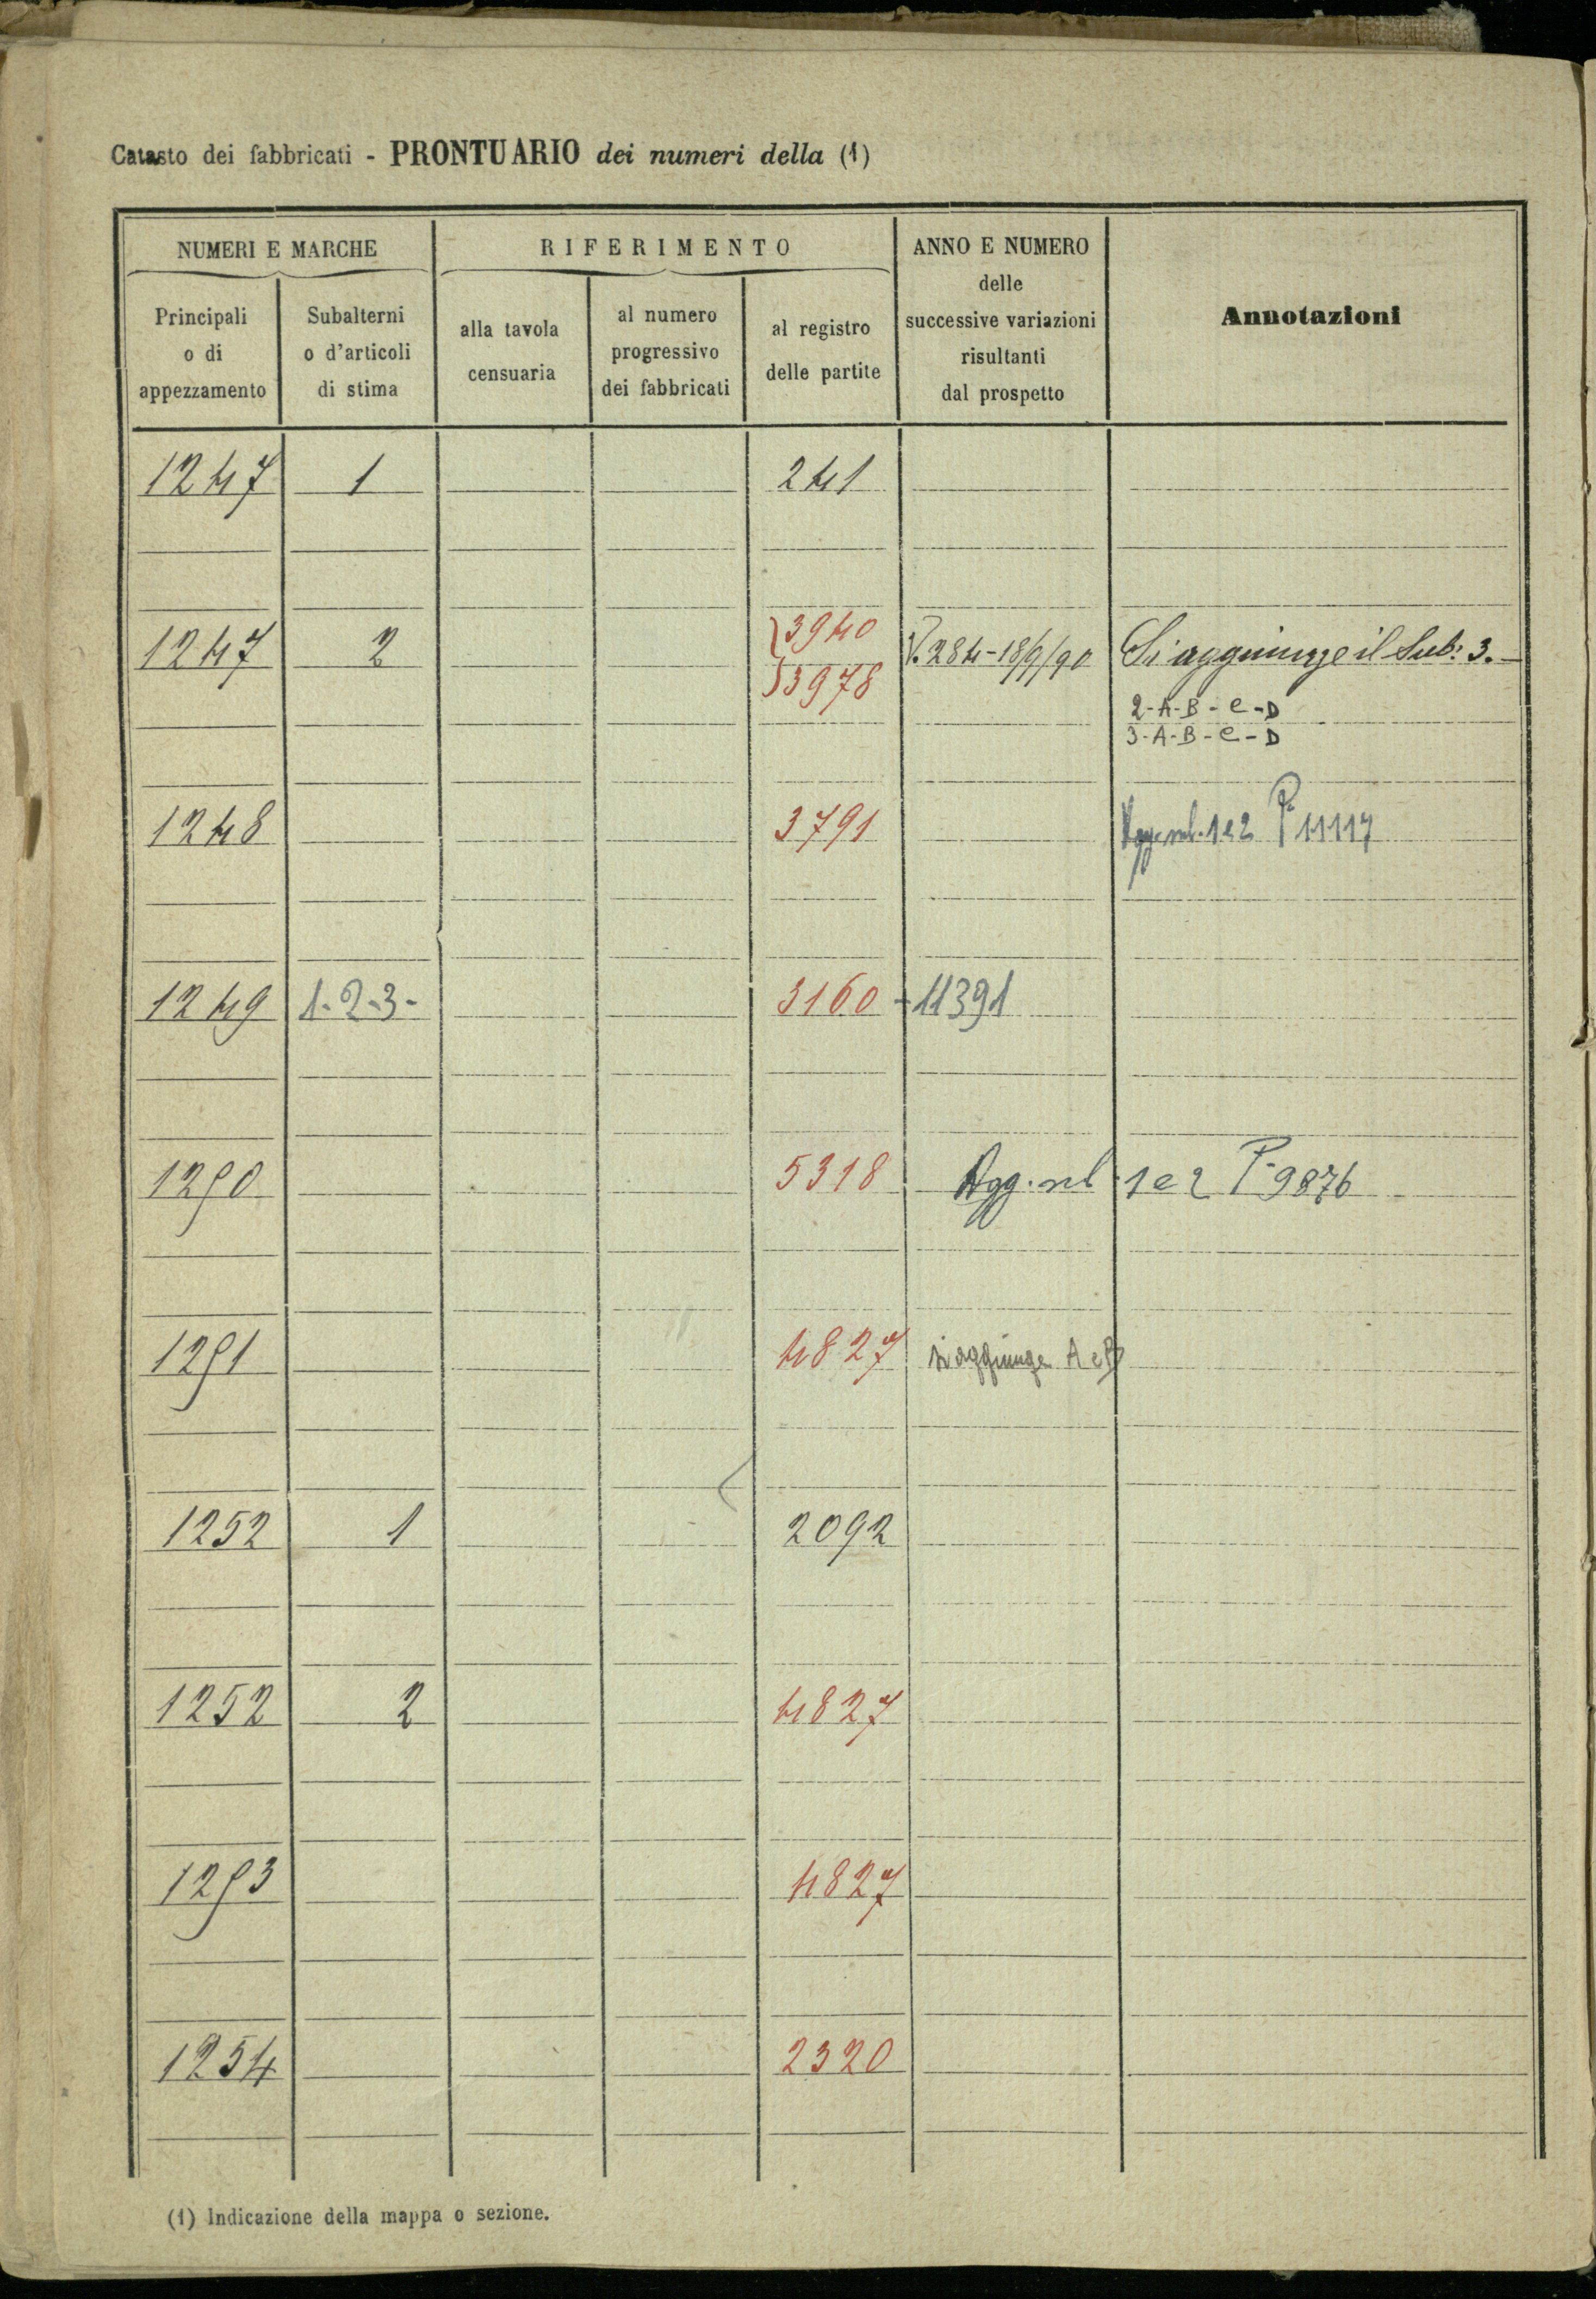 Catasto dei fabbricati - PRONTUARIO dei numeri della (1)
NUMERI E MARCHE
RIFERIMENTO
ANNO E NUMERO
delle
successive variazioni
risultanti
dal prospetto
Annotazioni
Principali
o di
appezzamento
Subalterni
o d'articoli
di stima
alla tavola
censuaria
al numero
progressivo
dei fabbricati
al registro
delle partite
1247 1 241
1247 2 3940 V. 284-18/9/90 Si aggiunge il Sub: 3.-
3978
2-A-B-C-D
3-A-B-C-D
1248 3791 1 e 2 P 11117
1249 1-2-3- 3160 - 11391
1250 5318 Agg. 1 e 2 P 9876
1251 4827 si aggiunge A e B
1252 1 2092
1252 2 4827
1253 4827
1254 2320
(1) Indicazione della mappa o sezione.